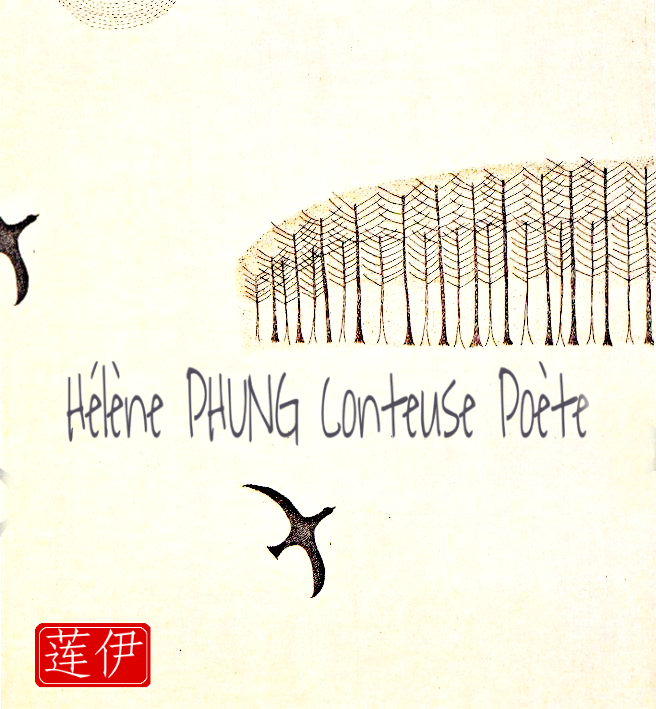 Hélène PHUNG Conteuse Poète
莲伊